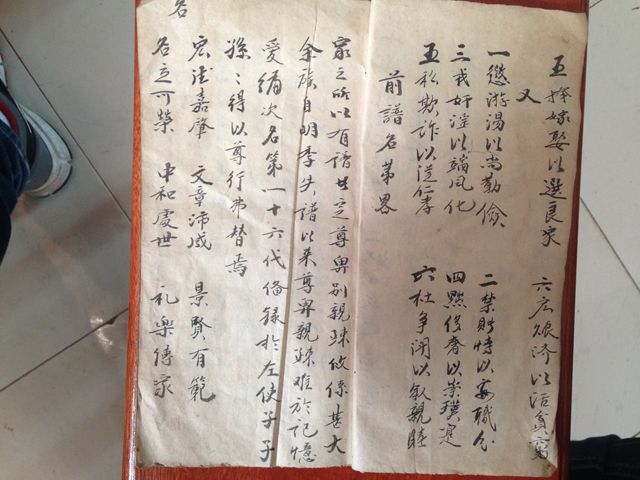 五择嫁娶以選良家 六広賑济以活貧窮
又
一懲游湯以尚勤儉 二禁賭 以安職分
三戒奸淫以端風化 四黜 奢以崇璞寔
五 欺诈以從仁孝 六杜争闹以敘親睦
前譜名第畧
家之所以有譜 定尊卑別親疎攸係甚大
余族自明季失譜以来尊卑親疎难於記憶
爰循次名第一十六代俻録於左使子子
孫〻得以尊行弗替焉
宏 嘉肇 文章沛盛 景賢有範
名立可榮 中和處世 礼樂傳家
名